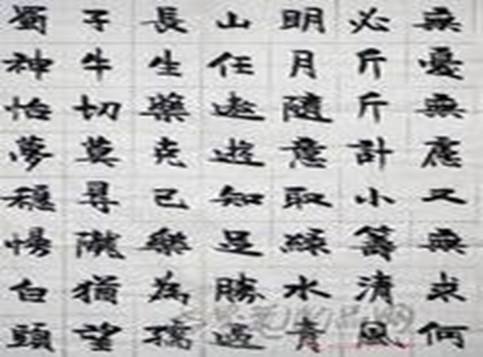 無憂無慮又無求何
必斤斤計小籌清風
明月隨意取綠水青
山任遨遊知足勝過
長生藥克己樂為孺
子牛切莫㝵隴猶望
蜀神怡夢穩慢白頭